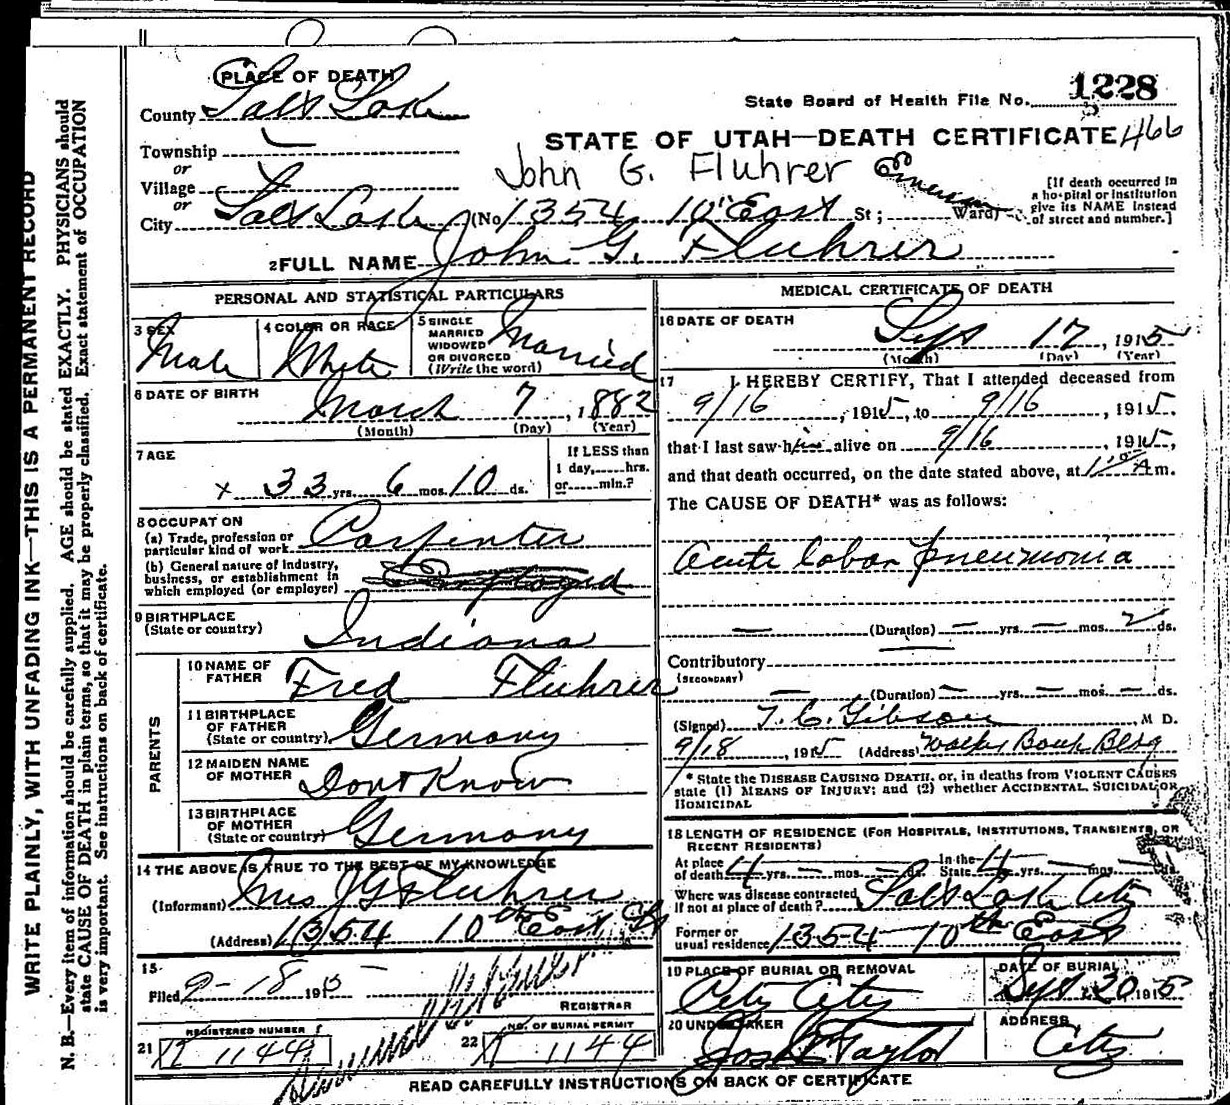 PLACE OF DEATH
County Salt Lake
State Board of Health File No. 1228
STATE OF UTAH—DEATH CERTIFICATE 466
Township
or
Village
or
John G. Fluhrer
[If death occurred in
a hospital or institution
give its NAME instead
of street and number.]
City Salt Lake (No 1354 10th East St; Ward)
2 FULL NAME John G. Fluhrer
PERSONAL AND STATISTICAL PARTICULARS
3 SEX Male
4 COLOR OR RACE White
5 SINGLE
MARRIED
WIDOWED
OR DIVORCED
(Write the word) Married
6 DATE OF BIRTH
March 7, 1882
(Month) (Day) (Year)
7 AGE
x 33 yrs. 6 mos. 10 ds.
If LESS than
1 day, hrs.
or min.?
8 OCCUPATION
(a) Trade, profession or
particular kind of work Carpenter
(b) General nature of Industry,
business, or establishment in
which employed (or employer)
9 BIRTHPLACE
(State or country) Indiana
PARENTS
10 NAME OF
FATHER Fred Fluhrer
11 BIRTHPLACE
OF FATHER
(State or country) Germany
12 MAIDEN NAME
OF MOTHER Dont Know
13 BIRTHPLACE
OF MOTHER
(State or country) Germany
14 THE ABOVE IS TRUE TO THE BEST OF MY KNOWLEDGE
(Informant) Mrs J G Fluhrer
(Address) 1354 10th East St
15
Filed 9-18 1915
REGISTRAR
REGISTERED NUMBER
21 1144
NO. OF BURIAL PERMIT
22 1144
MEDICAL CERTIFICATE OF DEATH
16 DATE OF DEATH
Sept 17, 1915
(Month) (Day) (Year)
17 I HEREBY CERTIFY, That I attended deceased from
9/16, 1915, to 9/16, 1915
that I last saw him alive on 9/16, 1915,
and that death occurred, on the date stated above, at A m.
The CAUSE OF DEATH* was as follows:
Acute lobar pneumonia
(Duration) yrs. mos. 2 ds.
Contributory
(SECONDARY)
(Duration) yrs. mos. ds.
(Signed) T. C. Gibson M D.
9/18, 1915 (Address) Walker Bank Bldg
* State the DISEASE CAUSING DEATH, or, in deaths from VIOLENT CAUSES
state (1) MEANS OF INJURY; and (2) whether ACCIDENTAL, SUICIDAL OR
HOMICIDAL
18 LENGTH OF RESIDENCE (FOR HOSPITALS, INSTITUTIONS, TRANSIENTS, OR
RECENT RESIDENTS)
At place
of death 4 yrs. mos. ds. In the
State 4 yrs. mos. ds.
Where was disease contracted,
if not at place of death? Salt Lake City
Former or
usual residence 1354 10th East
19 PLACE OF BURIAL OR REMOVAL
City
DATE OF BURIAL
Sept 20 1915
20 UNDERTAKER
Taylor
ADDRESS
City
READ CAREFULLY INSTRUCTIONS ON BACK OF CERTIFICATE
WRITE PLAINLY, WITH UNFADING INK—THIS IS A PERMANENT RECORD
N. B.—Every item of information should be carefully supplied. AGE should be stated EXACTLY. PHYSICIANS should
state CAUSE OF DEATH in plain terms, so that it may be properly classified. Exact statement of OCCUPATION
is very important. See instructions on back of certificate.